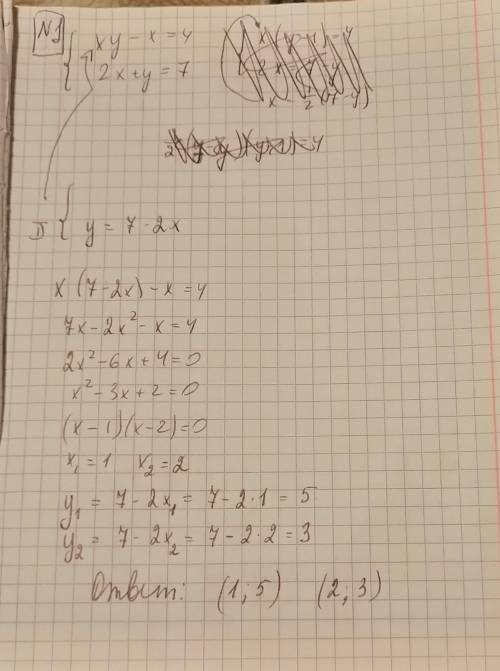 N1
xy - x = 4
2x + y = 7
y = 7 - 2x
x (7 - 2x) - x = 4
7x - 2x² - x = 4
2x² - 6x + 4 = 0
x² - 3x + 2 = 0
(x - 1)(x - 2) = 0
x₁ = 1 x₂ = 2
y₁ = 7 - 2x₁ = 7 - 2·1 = 5
y₂ = 7 - 2x₂ = 7 - 2·2 = 3
Ответ: (1; 5) (2; 3)